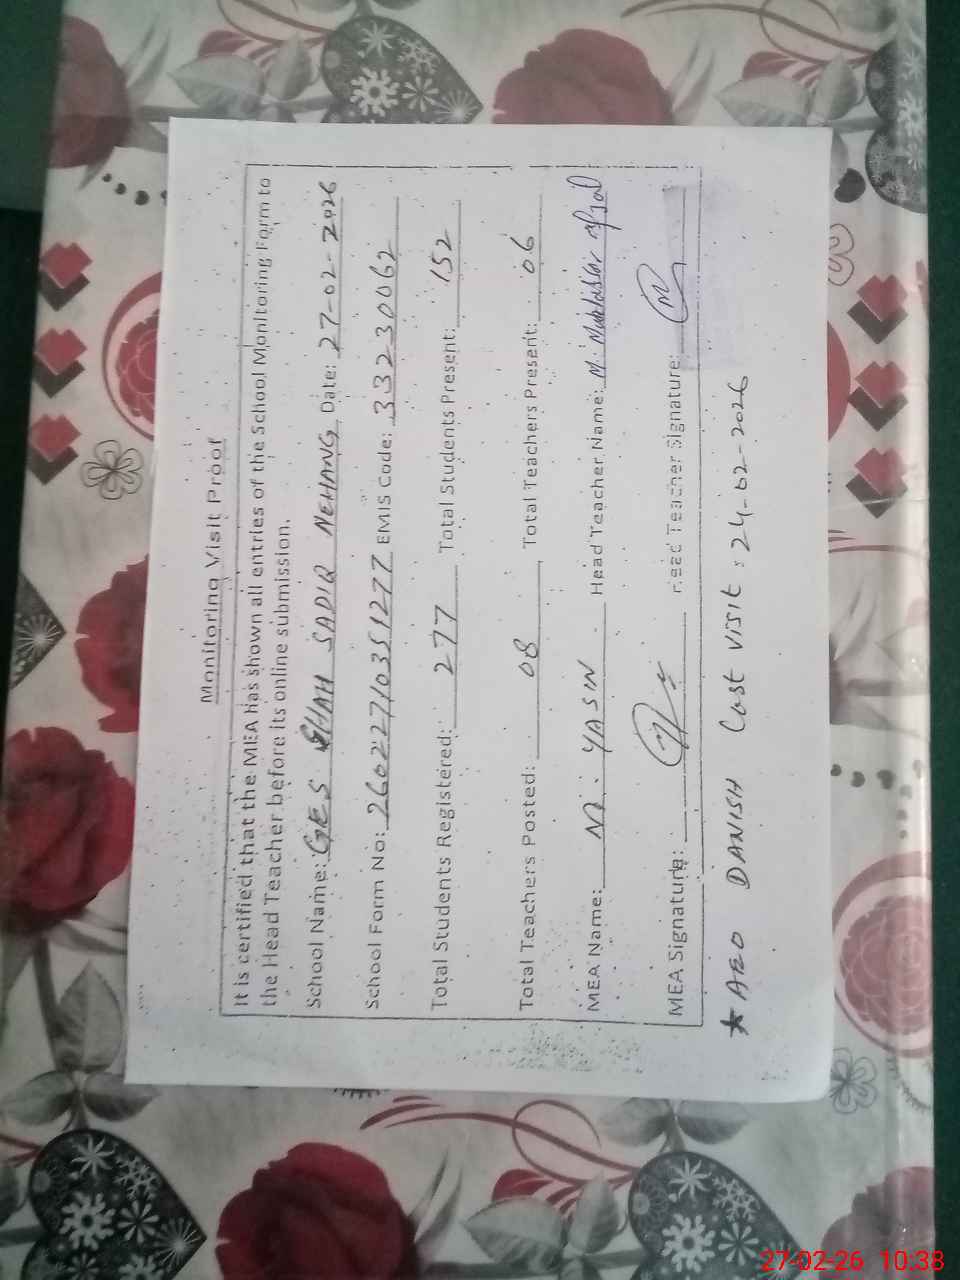 Monitoring Visit Proof
It is certified that the MEA has shown all entries of the School Monitoring Form to
the Head Teacher before its online submission.
School Name: GES SHAH SADIQ NEHANG Date: 27-02-2026
School Form No: 260222710351277 EMIS Code: 33230062
Total Students Registered: 277 Total Students Present: 152
Total Teachers Posted: 08 Total Teachers Present: 06
MEA Name: M. YASIN Head Teacher Name: M. Mukhtiar Afzal
MEA Signature: Head Teacher Signature:
★ AEO DANISH Last VISIT: 24-02-2026
27-02-26 10:38